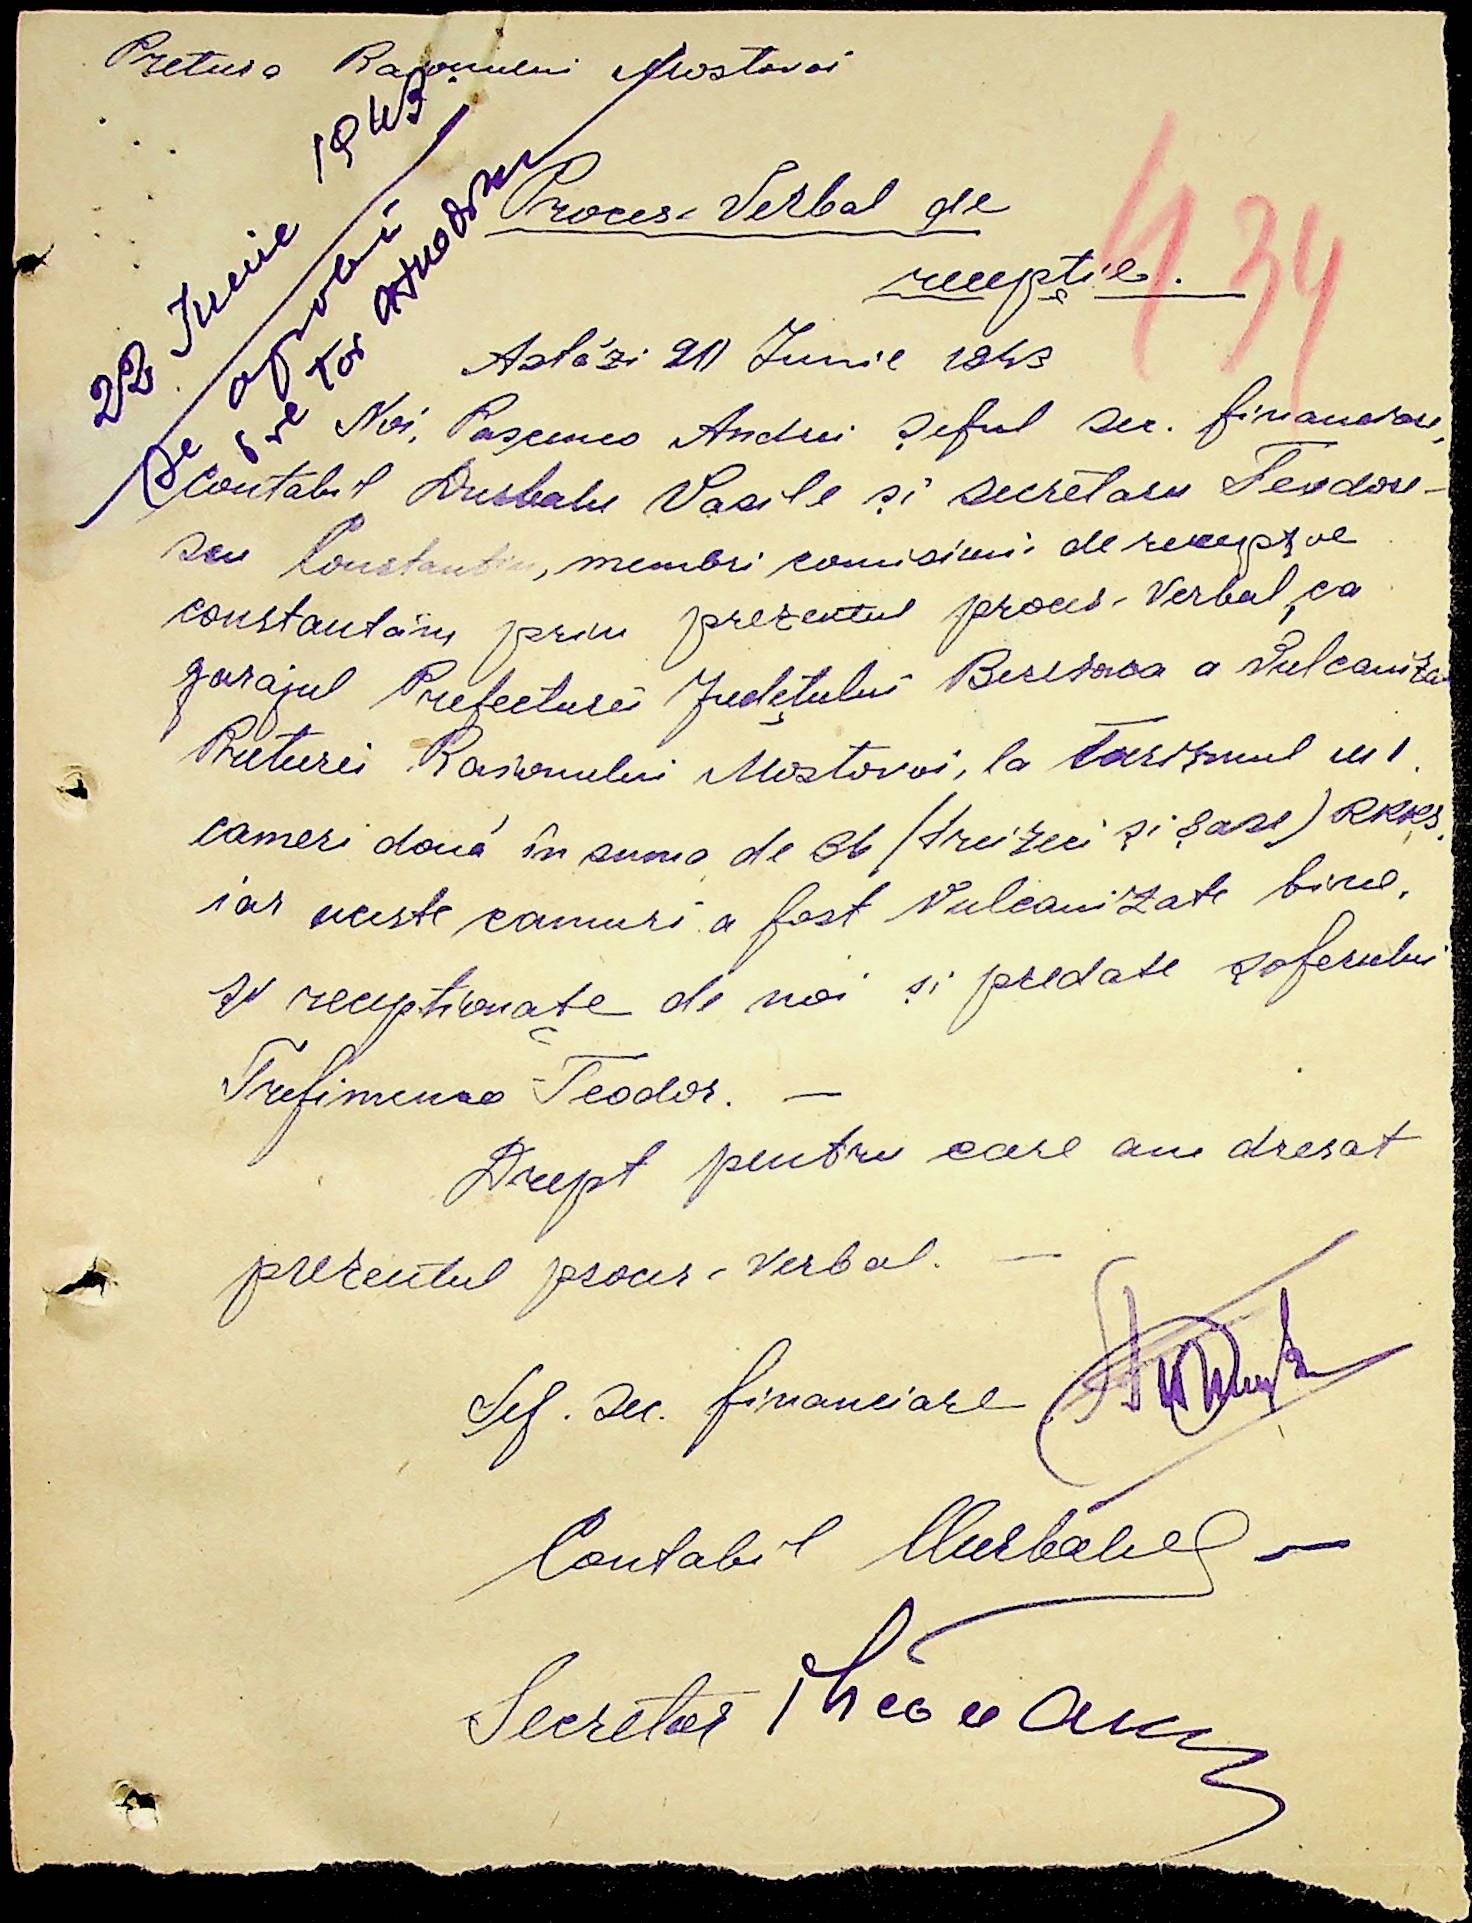 Pretura Raionului Mostovoi
22 Iunie 1943
Se aprobă
Proces-Verbal de
recepție.
434
Astăzi 21 Iunie 1943
Noi, Pasenco Andrei șeful sec. financiare,
Contabil Durbalu Vasile și secretaru Teodore-
scu Constantin, membri comisiuni de recepție
constantăm prin prezentul proces-Verbal, ca
garajul Prefecturei Județului Beresovca a Vulcaniza
Preturei Raionului Mostovoi, la Tarismul nr 1
cameri două în suma de 36 (treizeci și șase) RKKS,
iar aceste camuri a fost Vulcanizate bine,
și recepționate de noi și predate șoferului
Trefimenco Teodor. —
Drept pentru care am dresat
prezentul proces-verbal. —
Șef. sec. financiare
Contabil
Secretar